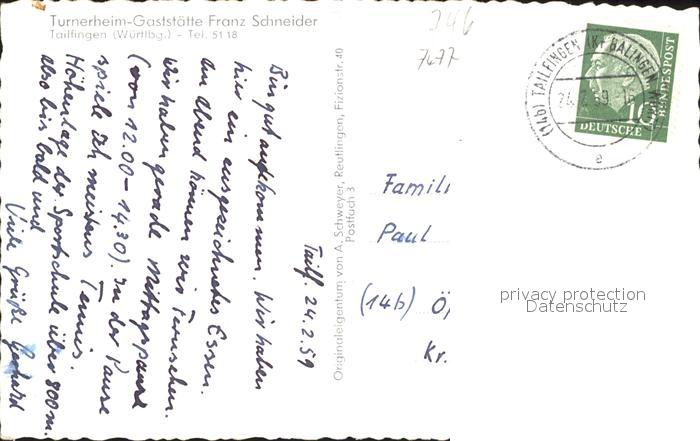 Turnerheim-Gaststätte Franz Schneider
Tailfingen (Württbg.) - Tel. 51 18
Tailf. 24.2.59
Bin gut angekommen. Wir haben
hier ein ausgezeichnetes Essen.
am Abend können wir Fernsehen.
Wir haben gerade Mittagspause
(von 12.00 - 14.30). In der Pause
spiele ich meistens Tennis.
Höhenlage der Sportschule über 800 m.
also bis bald und
Viele Grüße Gerhard
Originaleigentum von A. Schweyer, Reutlingen, Fizionstr. 40
Postfach 3
246
7477
(14b) TAILFINGEN (KR BALINGEN
e
10
DEUTSCHE
BUNDESPOST
Famili
Paul
(14b) Ö
Kr.
privacy protection
Datenschutz